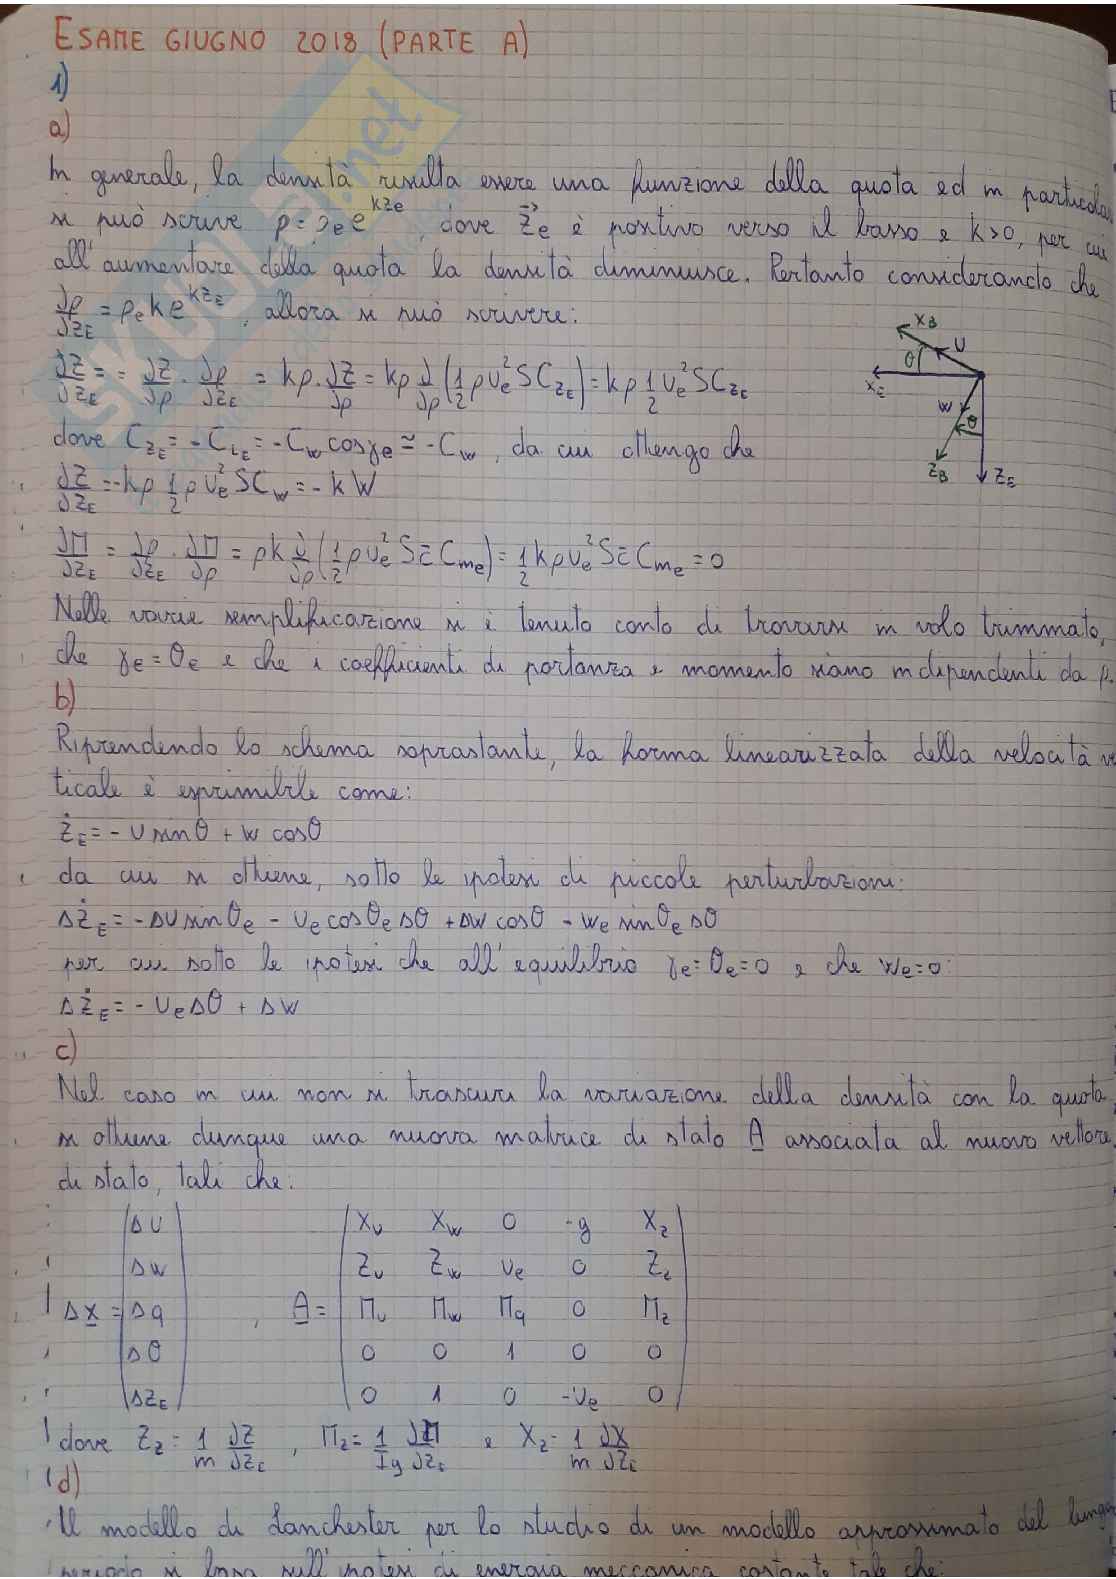 ESAME GIUGNO 2018 (PARTE A)
1)
a)
In generale, la densità risulta essere una funzione della quota ed in particolar
si può scrive ρ = ρₑ e^{kzₑ}, dove z⃗ₑ è positivo verso il basso e k>0, per cui
all'aumentare della quota la densità diminuisce. Pertanto considerando che
∂ρ/∂z_E = ρₑ k e^{kz_E}, allora si può scrivere:
∂Z/∂z_E = - ∂Z/∂ρ · ∂ρ/∂z_E = kρ · ∂Z/∂ρ = kρ ∂/∂ρ (1/2 ρUₑ² S C_{z_E}) = kρ 1/2 Uₑ² S C_{z_E}
dove C_{z_E} = -C_{L_E} = -C_w cosγₑ ≅ -C_w, da cui ottengo che
∂Z/∂z_E = -kρ 1/2 ρUₑ² S C_w = -kW
∂M/∂z_E = ∂ρ/∂z_E · ∂M/∂ρ = ρk ∂/∂ρ (1/2 ρUₑ² S c̄ C_{mₑ}) = 1/2 kρUₑ² S c̄ C_{mₑ} = 0
Nelle varie semplificazione si è tenuto conto di trovarsi in volo trimmato,
che γₑ = θₑ e che i coefficienti di portanza e momento siano indipendenti da ρ.
x_B
U
θ
x_E
W
θ
z_B
z_E
b)
Riprendendo lo schema soprastante, la forma linearizzata della velocità ve
ticale è esprimibile come:
ż_E = - U sinθ + W cosθ
da cui si ottiene, sotto le ipotesi di piccole perturbazioni:
Δż_E = -ΔU sinθₑ - Uₑ cosθₑ Δθ + ΔW cosθ - Wₑ sinθₑ Δθ
per cui sotto le ipotesi che all'equilibrio γₑ = θₑ = 0 e che Wₑ = 0:
Δż_E = - UₑΔθ + ΔW
c)
Nel caso in cui non si trascuri la variazione della densità con la quota,
si ottiene dunque una nuova matrice di stato A associata al nuovo vettore
di stato, tali che:
ΔU X_U X_W 0 -g X_z
ΔW Z_U Z_W Uₑ 0 Z_z
Δx = Δq , A = M_U M_W M_q 0 M_z
Δθ 0 0 1 0 0
Δz_E 0 1 0 -Uₑ 0
dove Z_z = 1/m ∂Z/∂z_E , M_z = 1/I_y ∂M/∂z_E e X_z = 1/m ∂X/∂z_E
d)
Il modello di Lanchester per lo studio di un modello approssimato del lungo
periodo si basa sull'ipotesi di energia meccanica costante tale che:
SKUOLA.net